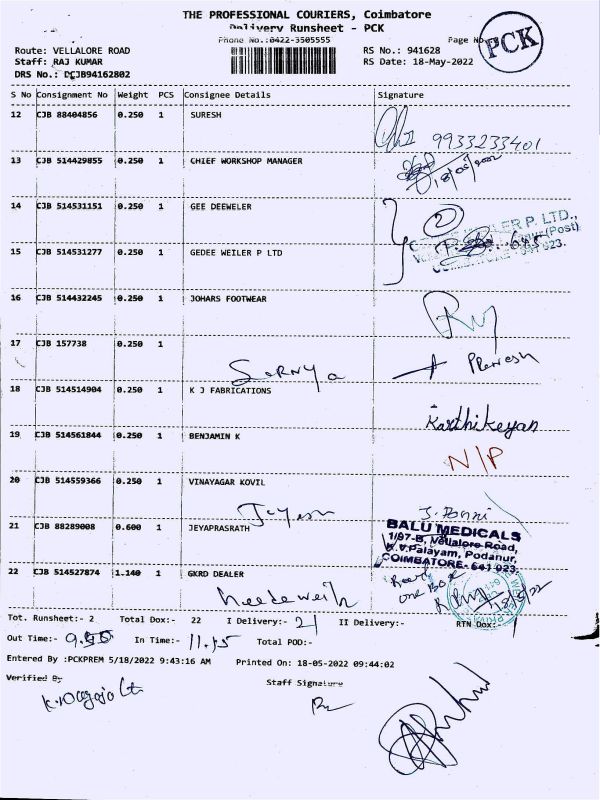 THE PROFESSIONAL COURIERS, Coimbatore
Delivery Runsheet - PCK
Phone No.:0422-3505555
Page No
PCK
Route: VELLALORE ROAD
RS No.: 941628
Staff: RAJ KUMAR
RS Date: 18-May-2022
DRS No.: DCJB94162802
S No Consignment No Weight PCS Consignee Details Signature
12 CJB 88404856 0.250 1 SURESH
9933233401
13 CJB 514429855 0.250 1 CHIEF WORKSHOP MANAGER
14 CJB 514531151 0.250 1 GEE DEEWELER
2
15 CJB 514531277 0.250 1 GEDEE WEILER P LTD
16 CJB 514432245 0.250 1 JOHARS FOOTWEAR
17 CJB 157738 0.250 1
18 CJB 514514904 0.250 1 K J FABRICATIONS
Karthikeyan
19 CJB 514561844 0.250 1 BENJAMIN K
N/P
20 CJB 514559366 0.250 1 VINAYAGAR KOVIL
21 CJB 88289008 0.600 1 JEYAPRASRATH
BALU MEDICALS
1/97-B, Vellalore Road,
Palayam, Podanur,
COIMBATORE- 641 023.
22 CJB 514527874 1.140 1 GKRD DEALER
one Box
Tot. Runsheet:- 2 Total Dox:- 22 I Delivery:- 21 II Delivery:- RTN Dox:-
Out Time:- In Time:- 11.15 Total POD:-
Entered By :PCKPREM 5/18/2022 9:43:16 AM Printed On: 18-05-2022 09:44:02
Verified By
Staff Signature